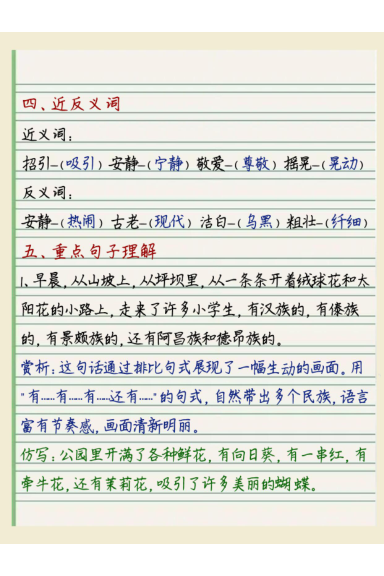 四、近反义词
近义词：
招引—(吸引) 安静—(宁静) 敬爱—(尊敬) 摇晃—(晃动)
反义词：
安静—(热闹) 古老—(现代) 洁白—(乌黑) 粗壮—(纤细)
五、重点句子理解
1、早晨，从山坡上，从坪坝里，从一条条开着绒球花和太
阳花的小路上，走来了许多小学生，有汉族的，有傣族
的，有景颇族的，还有阿昌族和德昂族的。
赏析：这句话通过排比句式展现了一幅生动的画面。用
“有……有……有……还有……”的句式，自然带出多个民族，语言
富有节奏感，画面清新明丽。
仿写：公园里开满了各种鲜花，有向日葵，有一串红，有
牵牛花，还有茉莉花，吸引了许多美丽的蝴蝶。